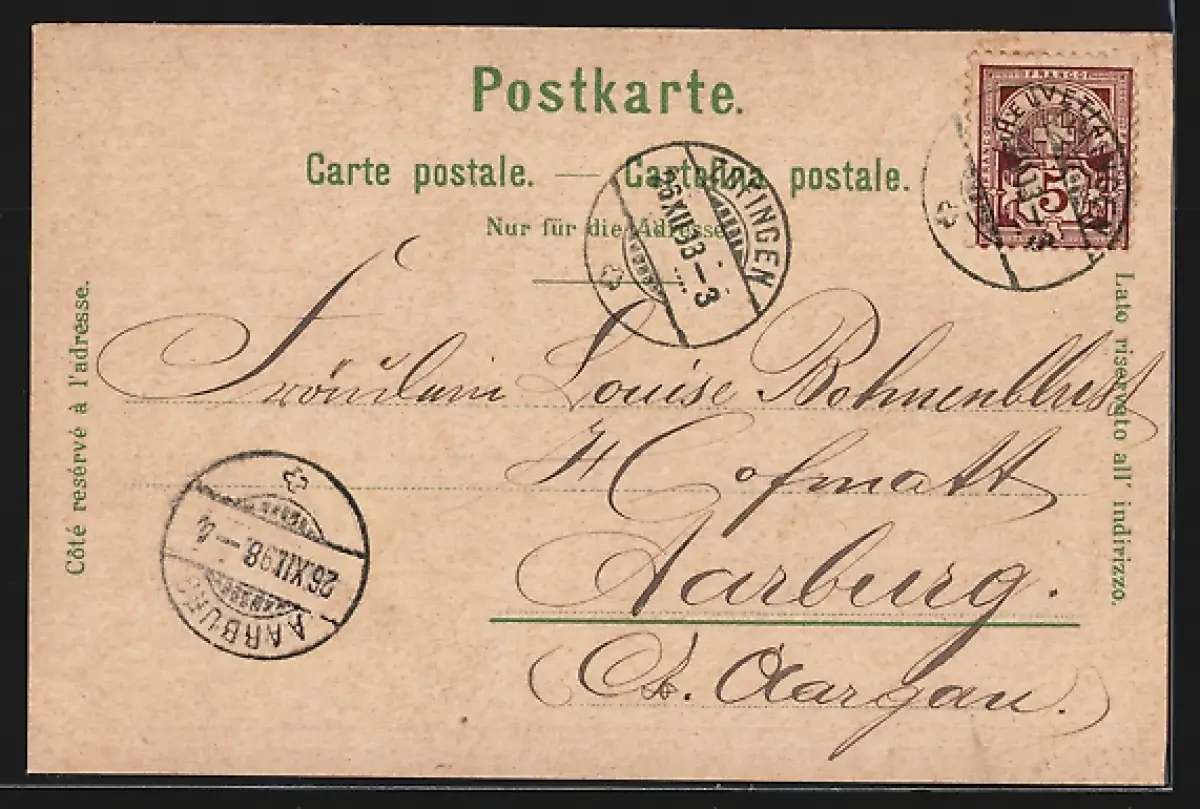 Postkarte.
Carte postale. — Cartolina postale.
Nur für die Adresse.
Côté reservé à l'adresse.
Lato riservato all' indirizzo.
FRANCO
HELVETIA
5
26.XII.98.–3
Fräulein Louise Bohnenblust
Hofmatt
Aarburg.
(Kt. Aargau.)
26.XII.98.–4
AARBURG